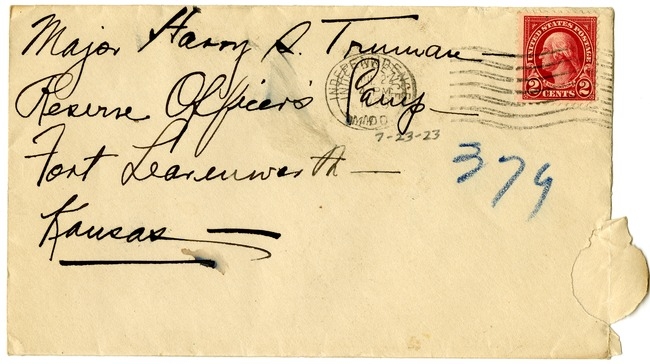 Major Harry S. Truman —
Reserve Officer's Camp —
Fort Leavenworth —
Kansas —
INDEPENDENCE
MO.
7-23-23
379
UNITED STATES POSTAGE
2 CENTS 2